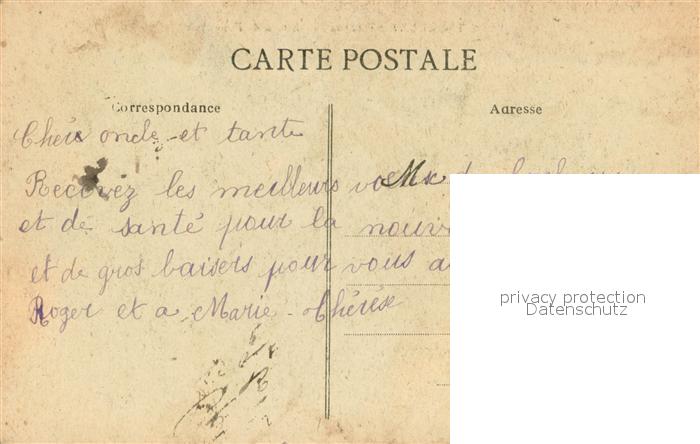 CARTE POSTALE
Correspondance
Adresse
Chers oncle et tante
Recevez les meilleurs voeux de
et de santé pour la
et de gros baisers pour vous
Roger et a Marie-Thérèse
privacy protection
Datenschutz